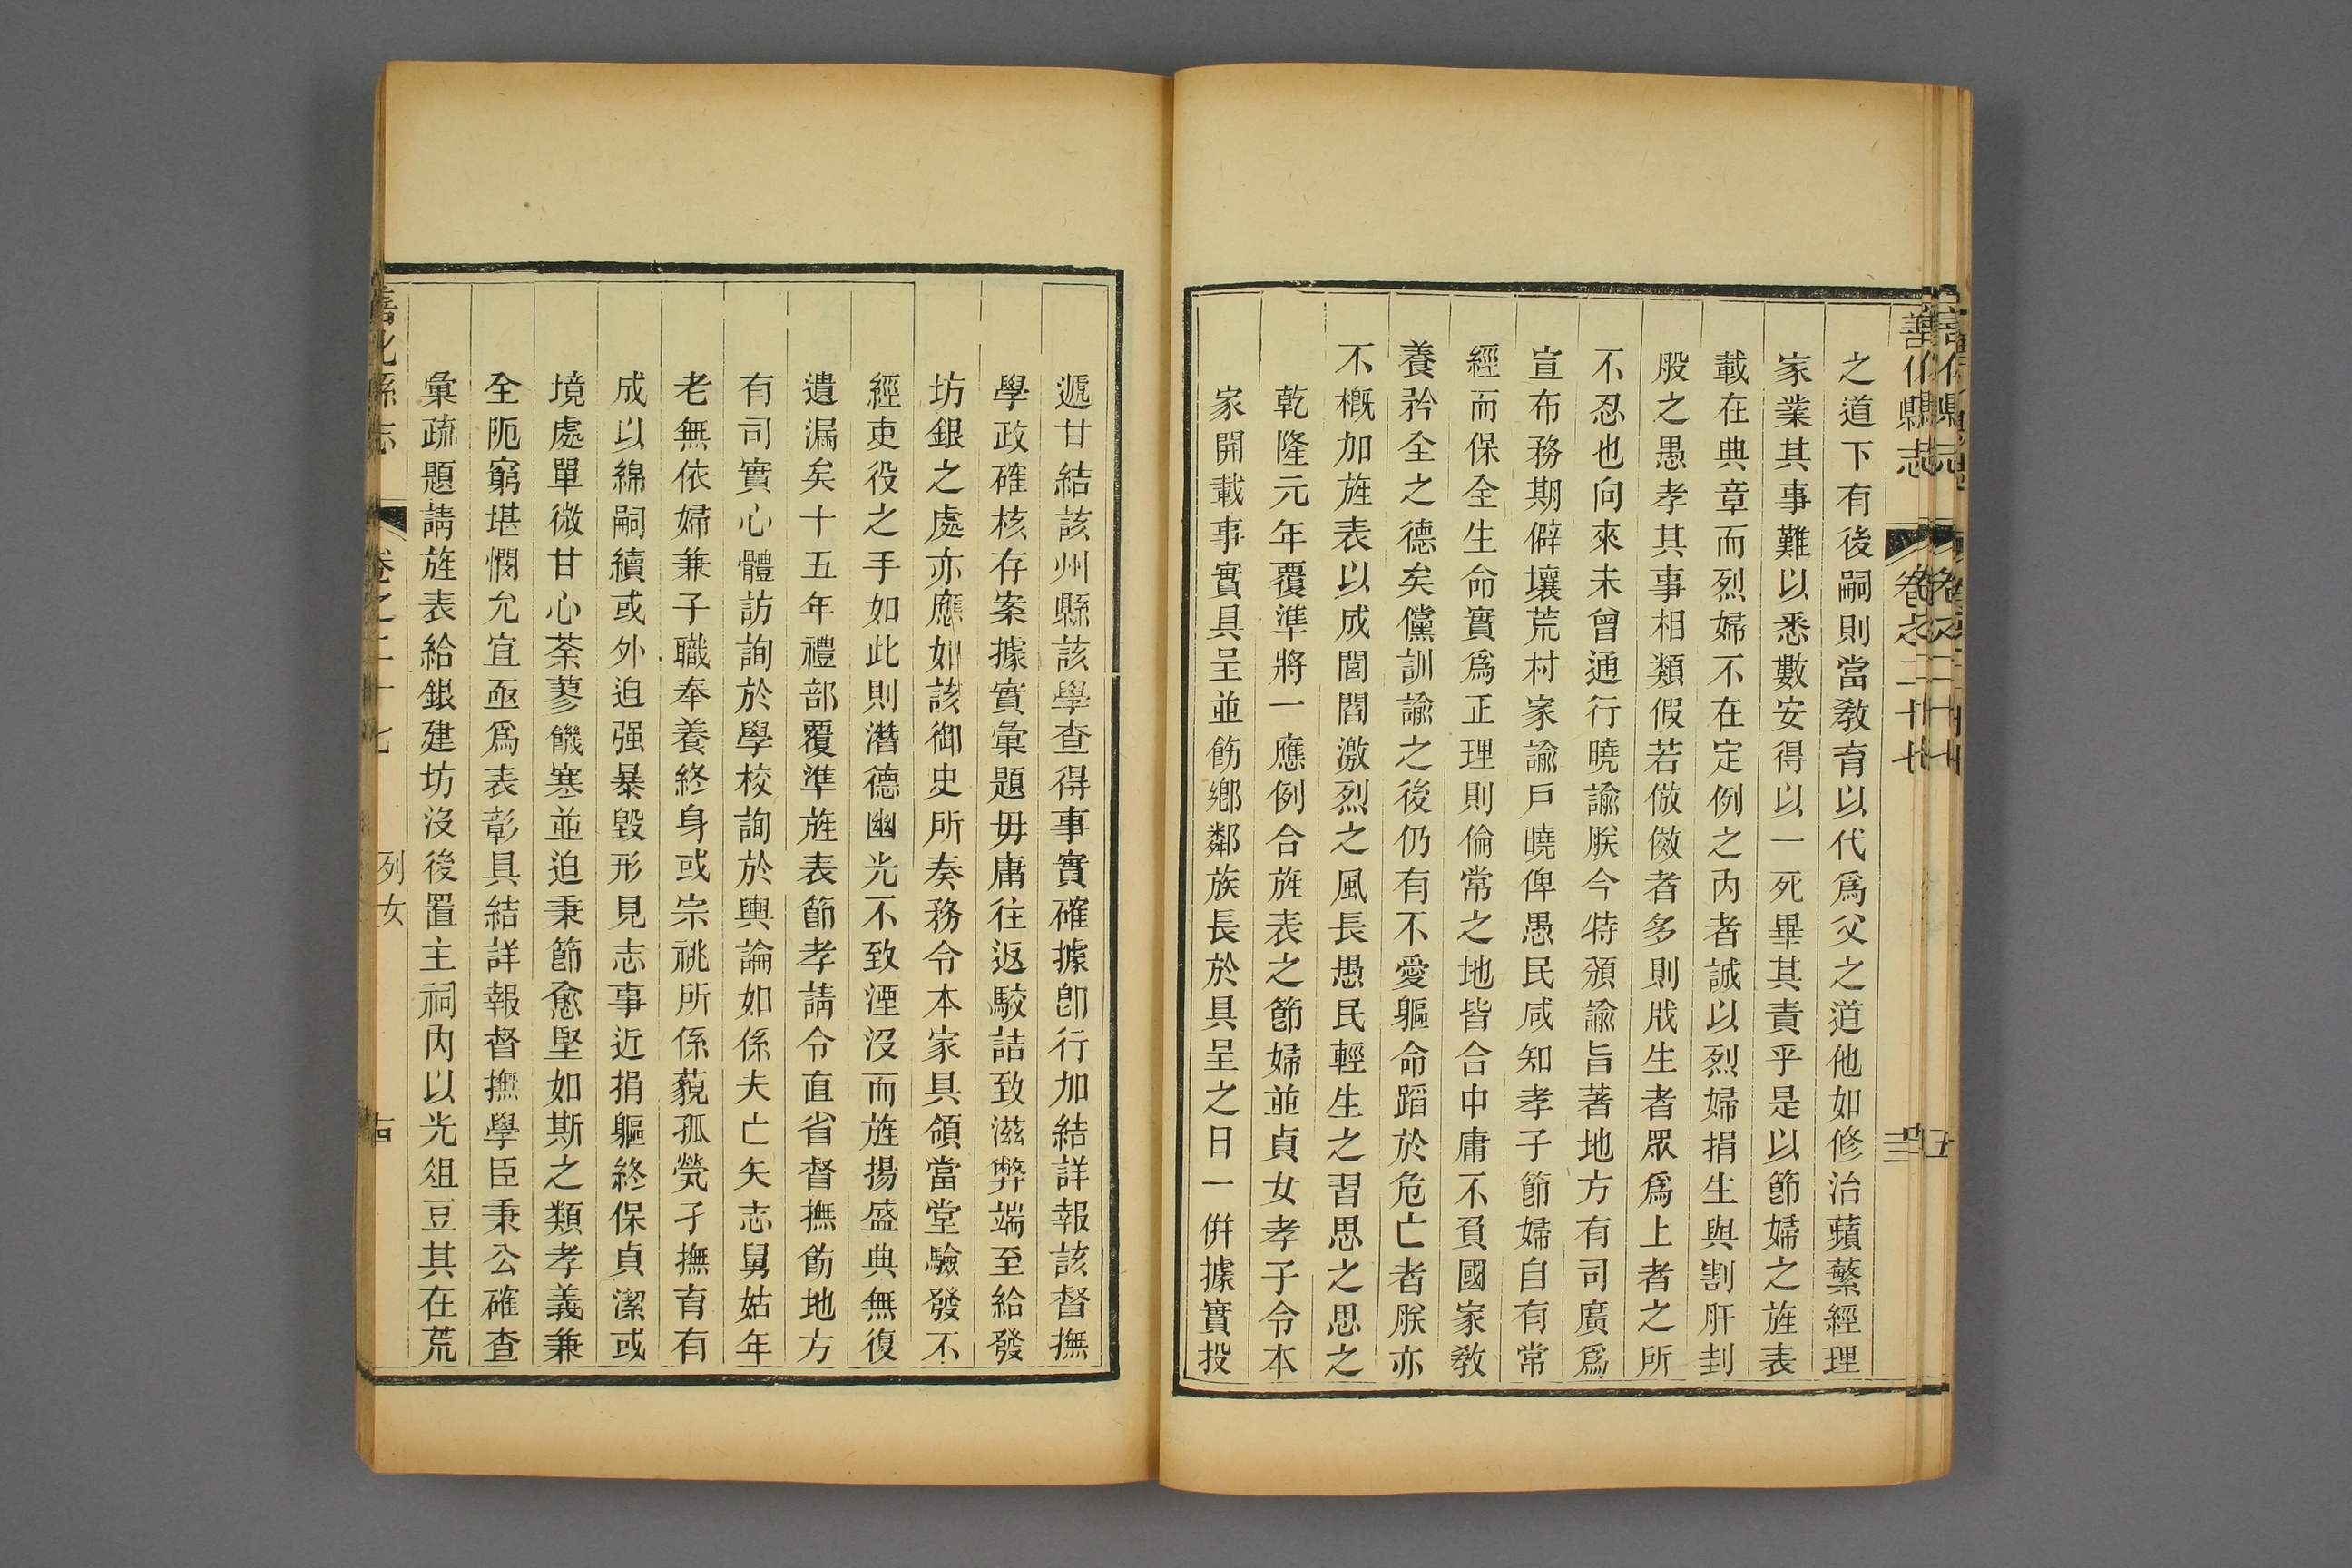 善化縣志
卷之二十七
之道下有後嗣則當教育以代爲父之道他如修治蘋蘩經理
家業其事難以悉數安得以一死畢其責乎是以節婦之旌表
載在典章而烈婦不在定例之內者誠以烈婦捐生與割肝刲
股之愚孝其事相類假若倣傚者多則戕生者眾爲上者之所
不忍也向來未曾通行曉諭朕今特頒諭旨著地方有司廣爲
宣布務期僻壤荒村家諭戶曉俾愚民咸知孝子節婦自有常
經而保全生命實爲正理則倫常之地皆合中庸不負國家教
養矜全之德矣儻訓諭之後仍有不愛軀命蹈於危亡者朕亦
不概加旌表以成閭閻激烈之風長愚民輕生之習思之思之
乾隆元年覆準將一應例合旌表之節婦並貞女孝子令本
家開載事實具呈並飭鄉鄰族長於具呈之日一併據實投
遞甘結該州縣該學查得事實確據卽行加結詳報該督撫
學政確核存案據實彙題毋庸往返駮詰致滋弊端至給發
坊銀之處亦應如該御史所奏務令本家具領當堂驗發不
經吏役之手如此則潛德幽光不致湮沒而旌揚盛典無復
遺漏矣十五年禮部覆準旌表節孝請令直省督撫飭地方
有司實心體訪詢於學校詢於輿論如係夫亡矢志舅姑年
老無依婦兼子職奉養終身或宗祧所係藐孤煢孑撫育有
成以綿嗣續或外迫强暴毀形見志事近捐軀終保貞潔或
境處單微甘心荼蓼饑寒並迫秉節愈堅如斯之類孝義兼
全阨窮堪憫允宜亟爲表彰具結詳報督撫學臣秉公確查
彙疏題請旌表給銀建坊沒後置主祠內以光俎豆其在荒
善化縣志
卷之二十七
列女